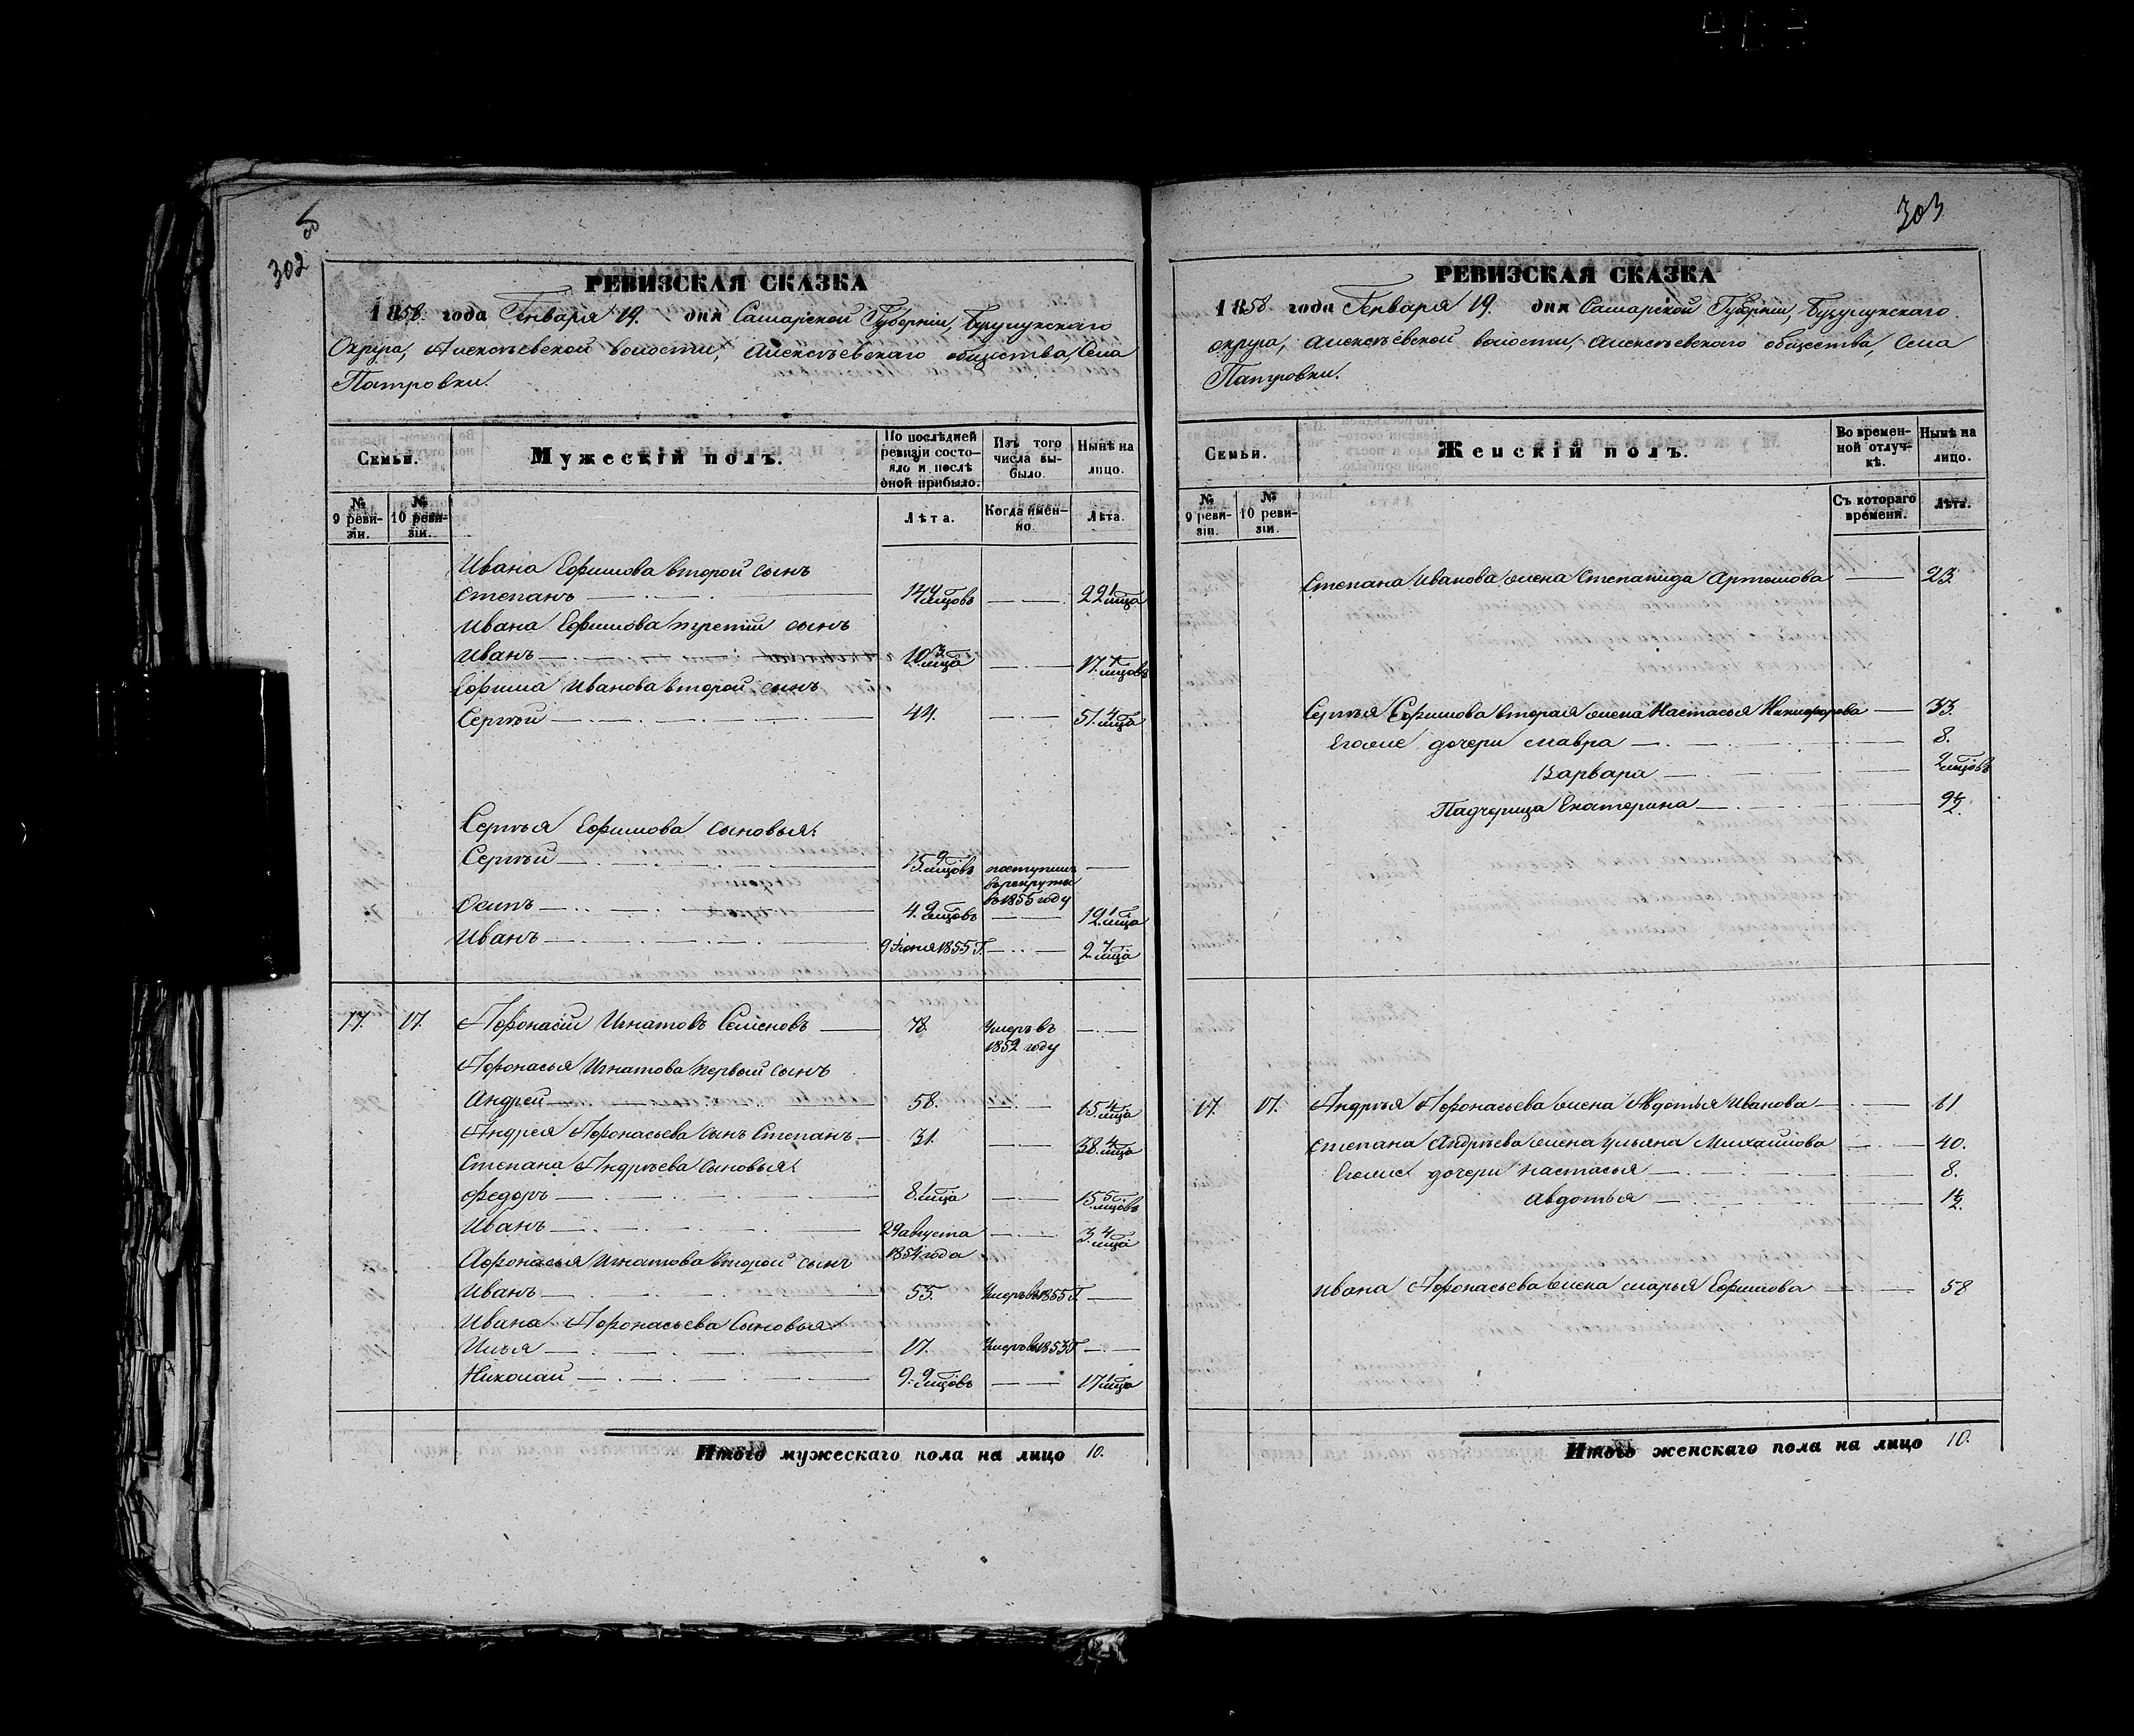 302
РЕВИЗСКАЯ СКАЗКА
1858. года Генваря 19. дня Самарской Губерніи, Бузулукскаго
Округа, Алексѣевской волости, Алексѣевскаго общества Села
Патровки.
Семьи.
Мужескій полъ.
По послѣдней ревизіи состояло и послѣ оной прибыло.
Изъ того числа выбыло.
Нынѣ на лицо.
№ 9 ревизіи.
№ 10 ревизіи.
Лѣта.
Когда именно.
Лѣта.
Ивана Ефимова второй сынъ
Степанъ 14 мцовъ 22 1/мца
Ивана Ефимова третій сынъ
Иванъ 10. 3/мца 17. мцовъ
Ефима Иванова второй сынъ
Сергѣй 44. 51. 4/мца
Сергѣя Ефимова сыновья:
Сергѣй 15. 9/мцовъ поступилъ въ рекруты въ 1855 году
Осипъ 4. 9/мцовъ 12. 1/мца
Иванъ 9 Июня 1855 Г. 2 мца
17. 17. Афонасій Игнатовъ Семеновъ 78. Умеръ въ 1852 году
Афонасья Игнатова первый сынъ
Андрей 58. 4/мца
Андрея Афонасьева сынъ Степанъ 31. 38. 4/мца
Степана Андрѣева сыновья:
Федоръ 8. 1/мца 15 5/мцовъ
Иванъ 29 августа 1854 года 3. 4/мца
Афонасья Игнатова второй сынъ
Иванъ 55. Умеръ въ 1855 Г.
Ивана Афонасьева Сыновья:
Илья 17. Умеръ въ 1853 Г.
Николай 9. 9/мцовъ 17 1/мца
Итого мужескаго пола на лицо 10.
303
РЕВИЗСКАЯ СКАЗКА
1858. года Генваря 19. дня Самарской Губерніи, Бузулукскаго
округа, Алексѣевской волости, Алексѣевскаго общества, Села
Патровки.
Семьи.
Женскій полъ.
Во временной отлучкѣ.
Нынѣ на лицо.
№ 9 ревизіи.
№ 10 ревизіи.
Съ котораго времени.
Лѣта.
Степана Иванова жена Степанида Артемова 23.
Сергѣя Ефимова вторая жена Настасья Никифорова 33.
Егоже дочери Мавра 8.
Варвара 2 мцовъ
Падчерица Екатерина 9½.
17. 17. Андрѣя Афонасьева жена Авдотья Иванова 61
Степана Андрѣева жена Ульяна Михайлова 40.
Егоже дочери Настасья 8.
Авдотья 1½.
Ивана Афонасьева жена Марья Ефимова 58
Итого женскаго пола на лицо 10.